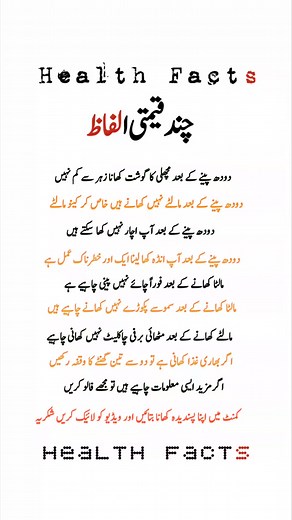 Health Facts
چند قیمتی الفاظ
دودھ پینے کے بعد مچھلی کا گوشت کھانا زہر سے کم نہیں
دودھ پینے کے بعد مالٹے نہیں کھانے ہیں خاص کر کینو مالٹے
دودھ پینے کے بعد آپ اچار نہیں کھا سکتے ہیں
دودھ پینے کے بعد آپ انڈہ کھا لینا ایک اور خطرناک عمل ہے
مالٹا کھانے کے بعد فوراً چائے نہیں پینی چاہیے ہے
مالٹا کھانے کے بعد سموسے پکوڑے نہیں کھانے چاہیے ہیں
مالٹے کھانے کے بعد مٹھائی برفی چاکلیٹ نہیں کھانی چاہیے
اگر بھاری غذا کھانی ہے تو دو سے تین گھنٹے کا وقفہ رکھیں
اگر مزید ایسی معلومات چاہیے ہیں تو مجھے فالو کریں
کمنٹ میں اپنا پسندیدہ کھانا بتائیں اور ویڈیو کو لائیک کریں شکریہ
HEALTH FACTS